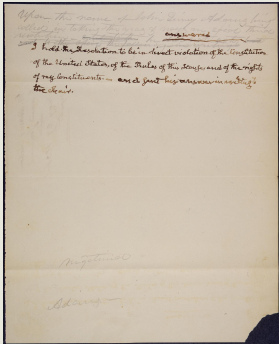 When the name of John Quincy Adams
answered
I hold the Resolution to be in direct violation of the Constitution
of the United States, of the Rules of this House and of the rights
of my Constituents. — and sent his answer in writing to
the Chair.
Adams